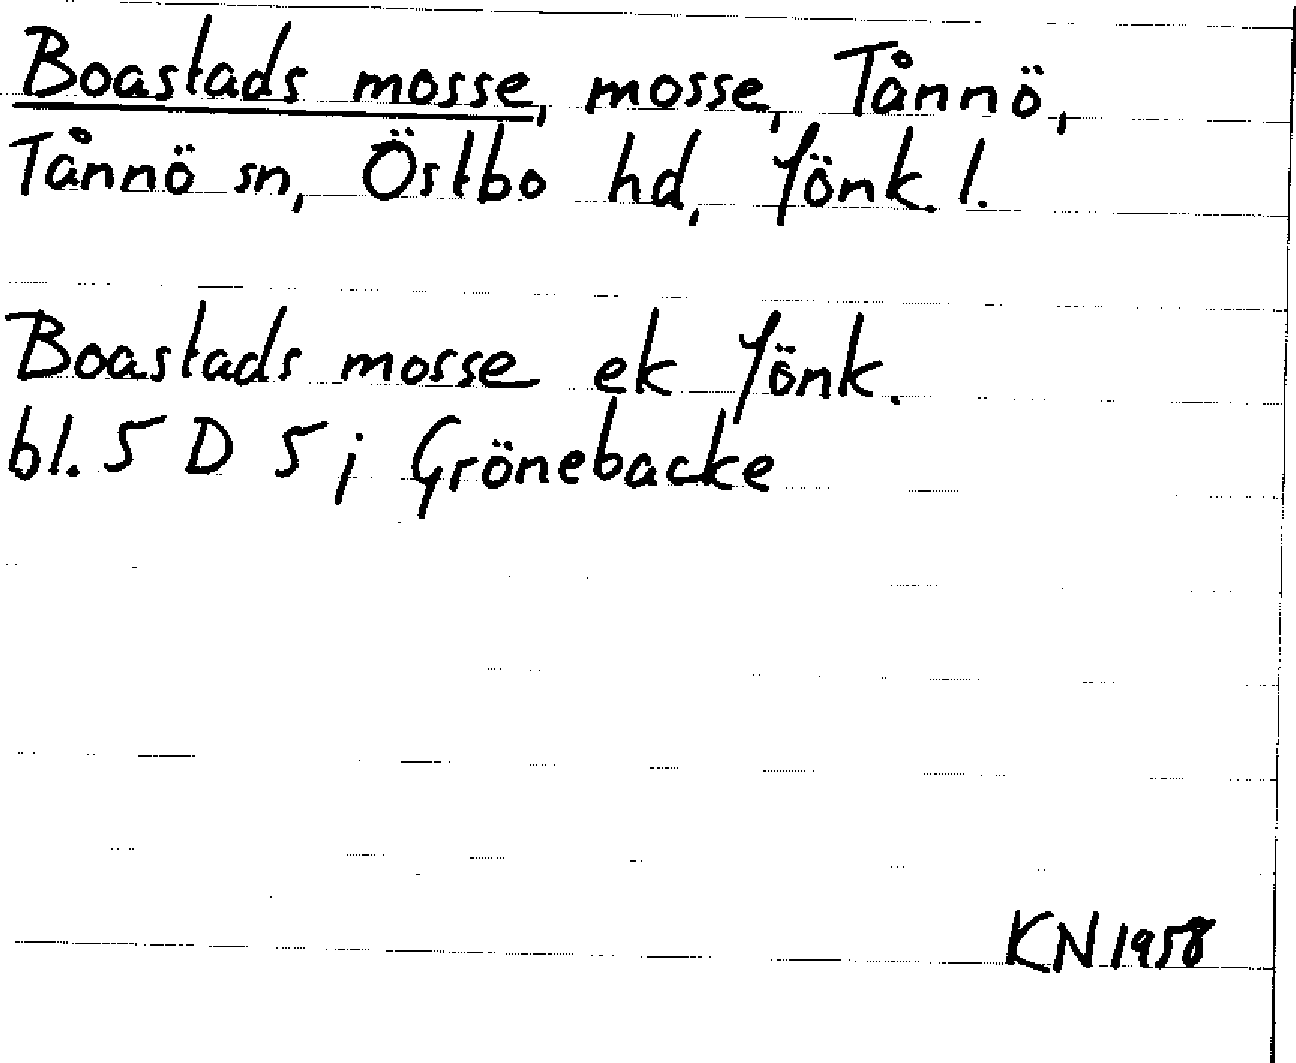 Boastads mosse, mosse, Tånnö,
Tånnö sn, Östbo hd, Jönk. l.
Boastads mosse ek Jönk.
bl. 5 D 5 j Grönebacke
KN 1958